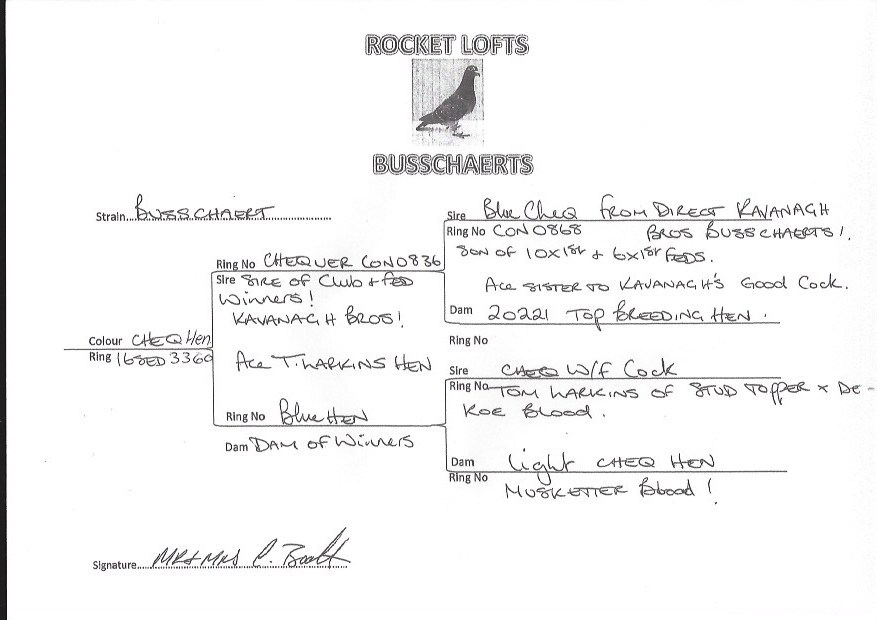 ROCKET LOFTS
BUSSCHAERTS
Strain...BUSSCHAERT
Sire Blue CheQ FROM DIRECT KAVANAGH
Ring No CON0868 BROS BUSSCHAERTS!.
SON OF 10X1st + 6x1st FEDS.
Ace SISTER TO KAVANAGH'S Good Cock.
Dam 20221 Top BREEDING HEN .
Ring No
Ring No CHEQUER CON0836
Sire SIRE OF Club + FED
Winners!
KAVANAGH BROS!
Colour CHEQ Hen
Ring 16SED 3360
Ace T. LARKINS HEN
Ring No Blue HEN
Dam DAM OF Winners
Sire CHEQ W/F Cock
Ring No TOM LARKINS OF STUD TOPPER x De-
KOE Blood.
Dam Light CHEQ HEN
Ring No
MUSKETTER Blood !
Signature...MR+MRS